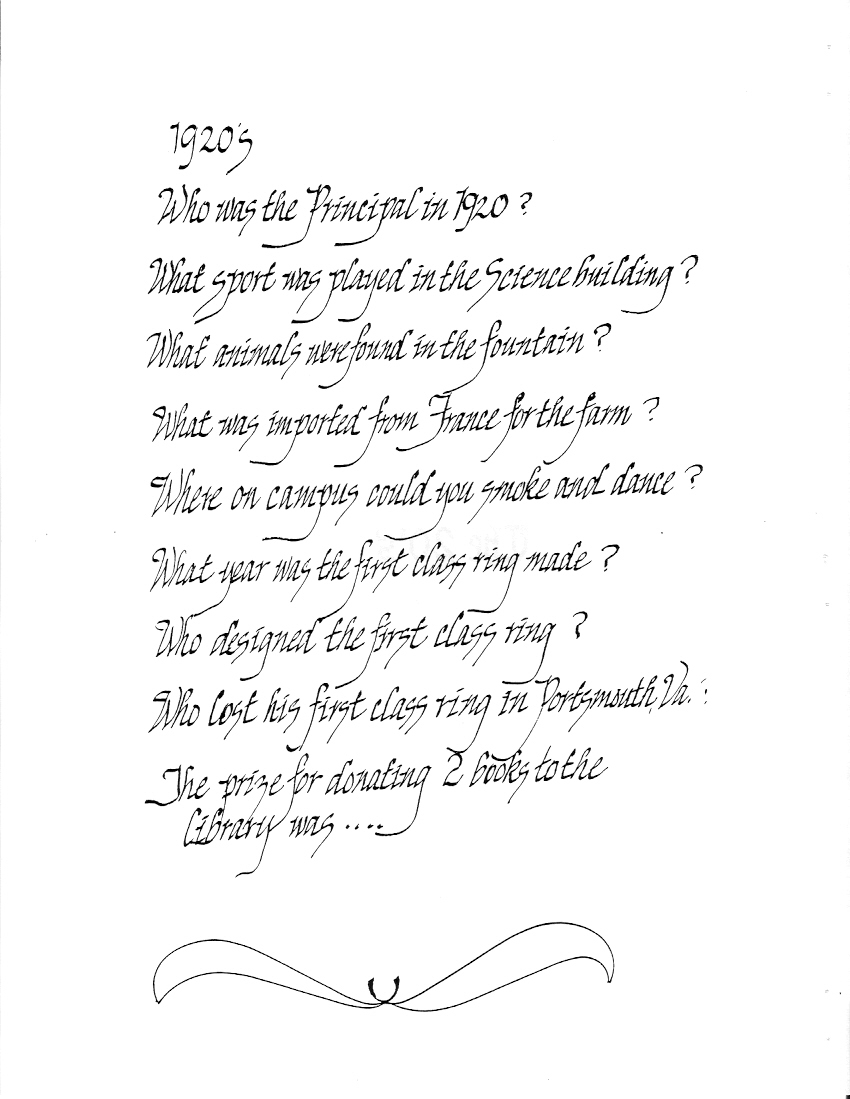 1920's
Who was the Principal in 1920 ?
What sport was played in the Science building ?
What animals were found in the fountain ?
What was imported from France for the farm ?
Where on campus could you smoke and dance ?
What year was the first class ring made ?
Who designed the first class ring ?
Who lost his first class ring in Portsmouth, Va. :
The prize for donating 2 books to the
Library was ....